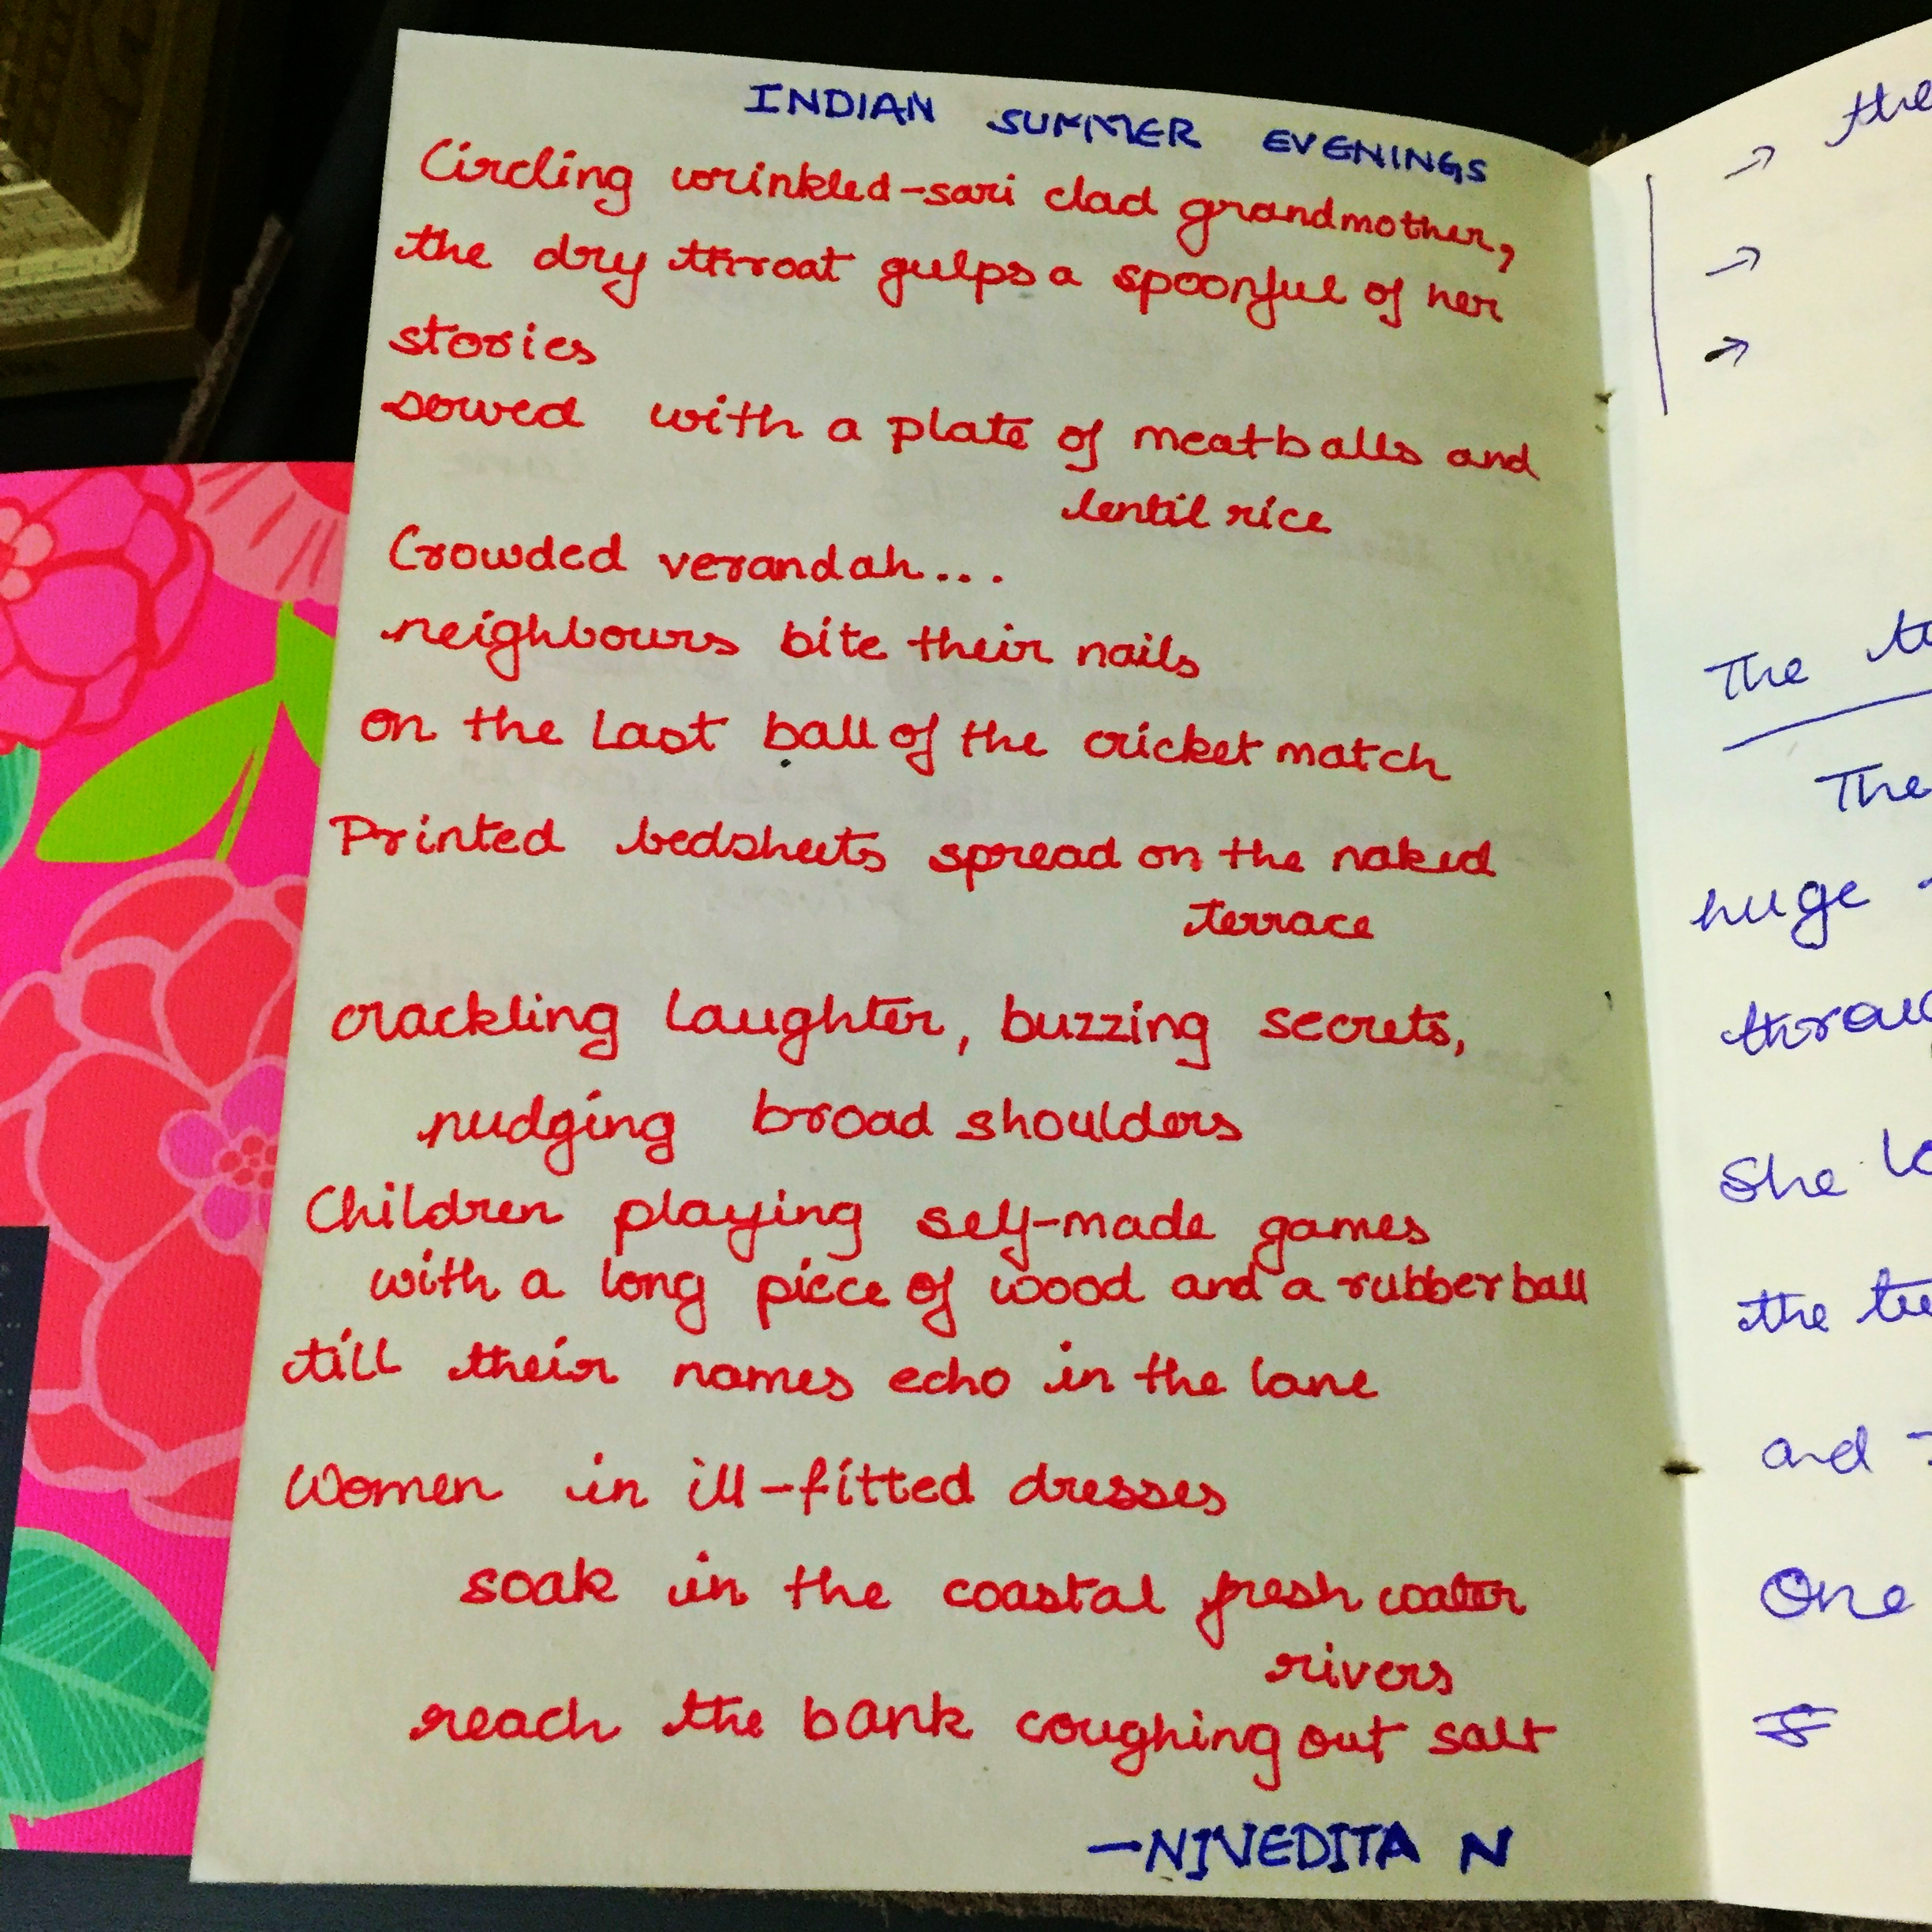 INDIAN SUMMER EVENINGS
Circling wrinkled-sari clad grandmother,
the dry throat gulps a spoonful of her
stories
sowed with a plate of meatballs and
lentil rice
Crowded verandah...
neighbours bite their nails
on the last ball of the cricket match
Printed bedsheets spread on the naked
terrace
crackling laughter, buzzing secrets,
nudging broad shoulders
Children playing self-made games
with a long piece of wood and a rubber ball
till their names echo in the lane
Women in ill-fitted dresses
soak in the coastal fresh water
rivers
reach the bank coughing out salt
-NIVEDITA N
→ the
→
→
The
The
huge
She
the
and
One